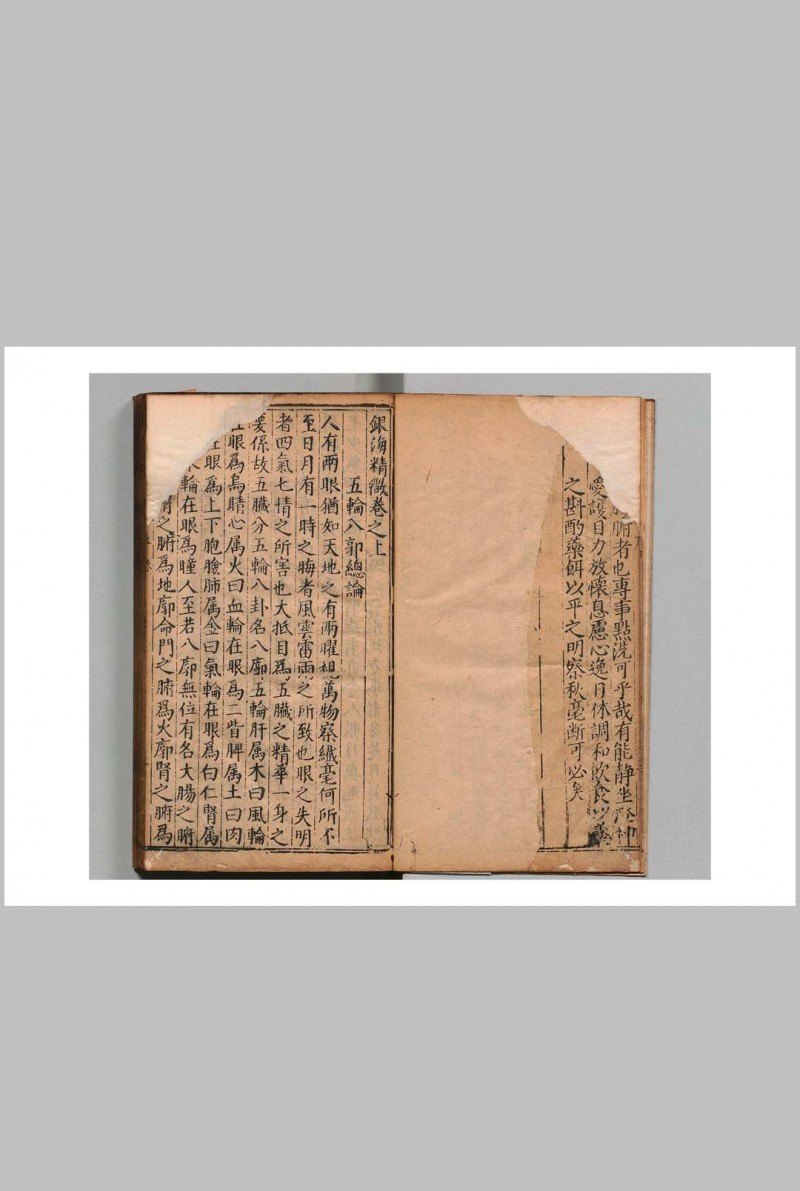 腑者也專事點洗可乎哉有能靜坐澄神
愛護目力放懷息慮心逸日休調和飲食以養
之斟酌藥餌以平之明察秋毫断可必矣
銀海精微卷之上
五輪八郭總論
人有兩眼猶如天地之有兩曜視萬物察纎毫何所不
至日月有一時之晦者風雲雷雨之所致也眼之失明
者四氣七情之所害也大抵目為五臟之精華一身之
要係故五臟分五輪八卦名八廓五輪肝属木曰風輪
在眼為烏睛心属火曰血輪在眼為二眥脾属土曰肉
在眼為上下胞瞼肺属金曰氣輪在眼為白仁腎属
水輪在眼為瞳人至若八廓無位有名大腸之腑
之腑為地廓命門之腑為火廓腎之腑為